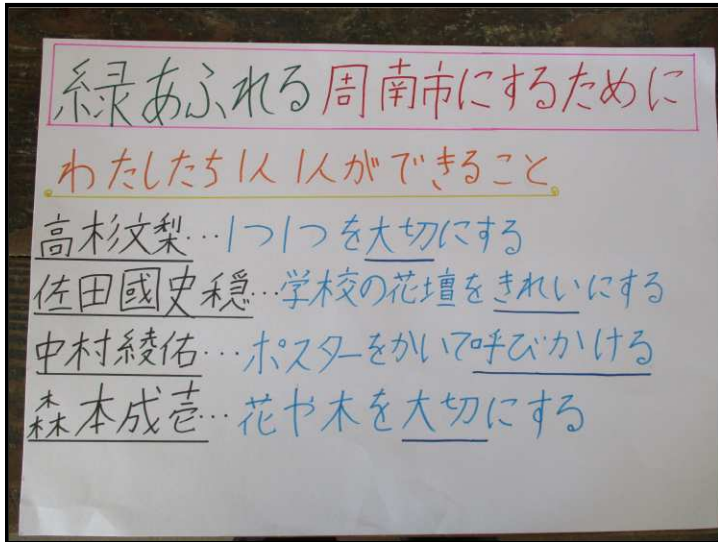 緑あふれる周南市にするために
わたしたち1人1人ができること
高杉文梨…1つ1つを大切にする
佐田國史穏…学校の花壇をきれいにする
中村綾佑…ポスターをかいて呼びかける
森本成壱…花や木を大切にする